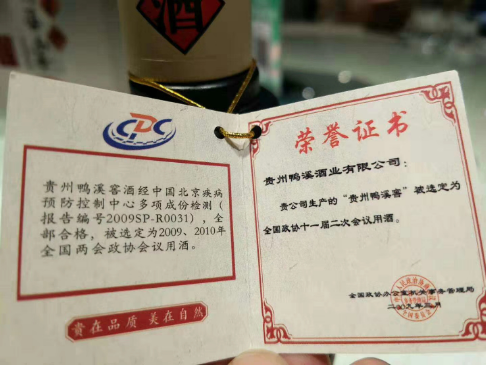 酒
CDC
贵州鸭溪窖酒经中国北京疾病
预防控制中心多项成份检测(
报告编号2009SP-R0031),全
部合格,被选定为2009、2010年
全国两会政协会议用酒。
贵在品质 美在自然
荣誉证书
贵州鸭溪酒业有限公司:
贵公司生产的“贵州鸭溪窖”被选定为
全国政协十一届二次会议用酒。
全国政协办公室机关事务管理局
二〇〇九年三月